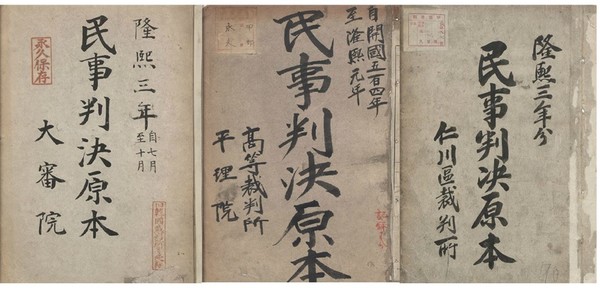 隆熙三年 自七月 至十月
民事判決原本
大審院
永久保存
自開國五百四年
至隆熙元年
民事判決原本
高等裁判所
平理院
隆熙三年分
民事判決原本
仁川區裁判所